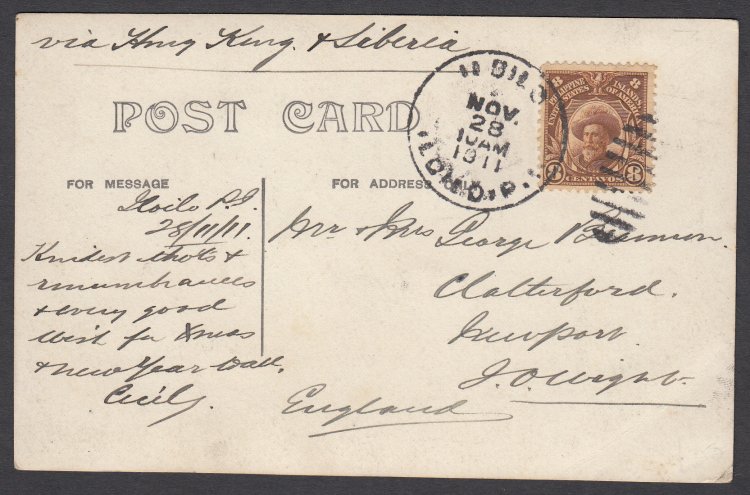 via Hong Kong & Siberia
POST CARD
ILOILO
NOV.
28
10AM
1911
ILOILO, P.I.
8 8
PHILIPPINE ISLANDS
UNITED STATES OF AMERICA
8 CENTAVOS 8
FOR MESSAGE
FOR ADDRESS
Iloilo P.I.
28/11/11.
Kindest thots &
remembrances
& every good
wish for Xmas
& New Year
Cecily.
Mr & Mrs George
Clatterford.
Newport.
I.O.Wight.
England